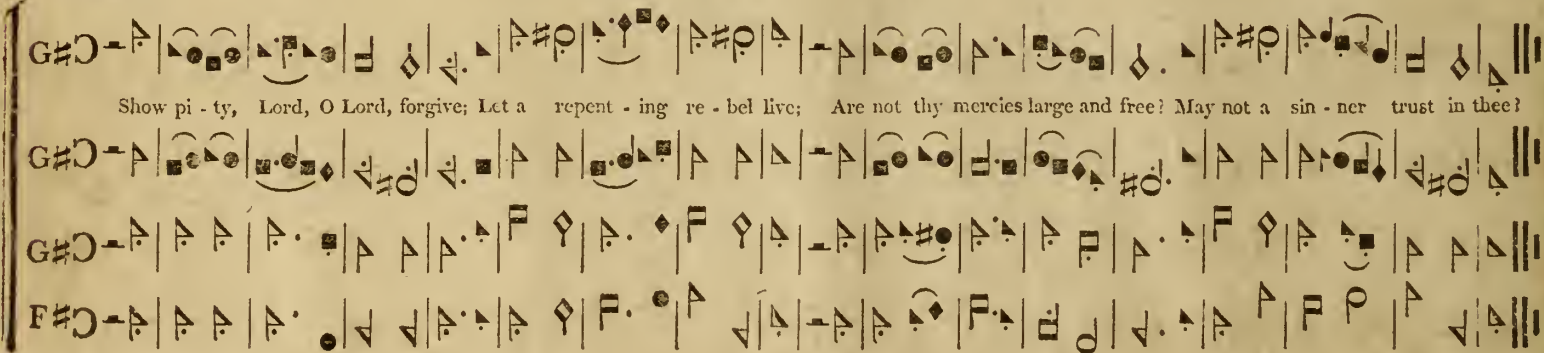 G#
Show pi - ty, Lord, O Lord, forgive; Let a repent - ing re - bel live; Are not thy mercies large and free? May not a sin - ner trust in thee?
G#
G#
F#